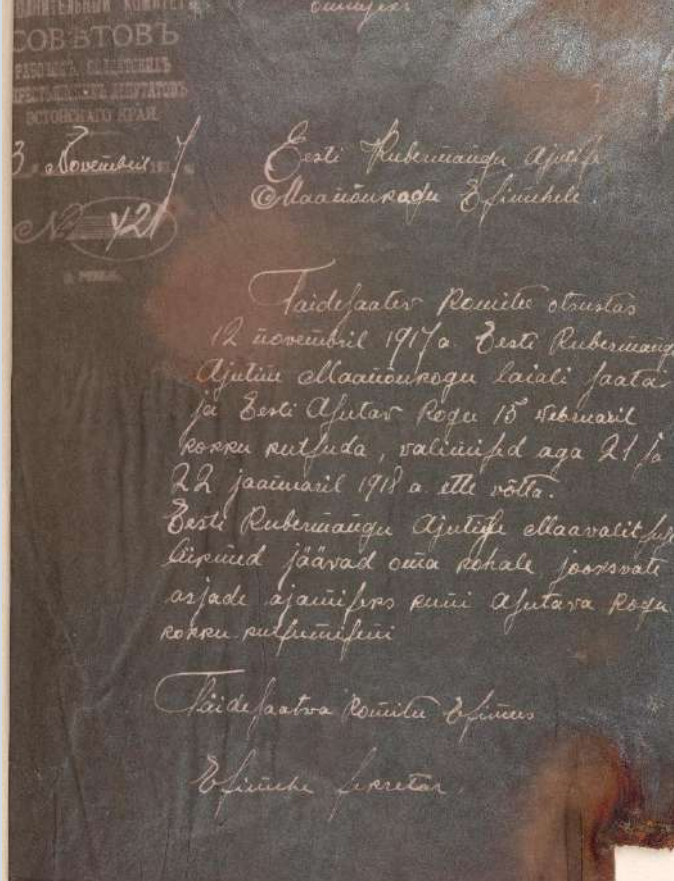 СОВѢТОВЪ
РАБОЧИХЪ, СОЛДАТСКИХЪ
ЭСТОНСКАГО КРАЯ.
3 Novembril
№ 421
Eesti Kubermangu Ajutise
Maanõukogu Esimehele.
Täidesaatev Komitee otsustas
12 novembril 1917 a. Eesti Kubermangu
Ajutise Maanõukogu laiali saata
ja Eesti Asutav Kogu 15 webruaril
kokku kutsuda, valimised aga 21 ja
22 jaanuaril 1918 a. ette võtta.
Eesti Kubermangu Ajutise Maavalitsuse
liikmed jäävad oma kohale jooksvate
asjade ajamiseks kuni Asutava Kogu
kokku kutsumiseni
Täidesaatva Komitee Esimees
Esimehe sekretär.